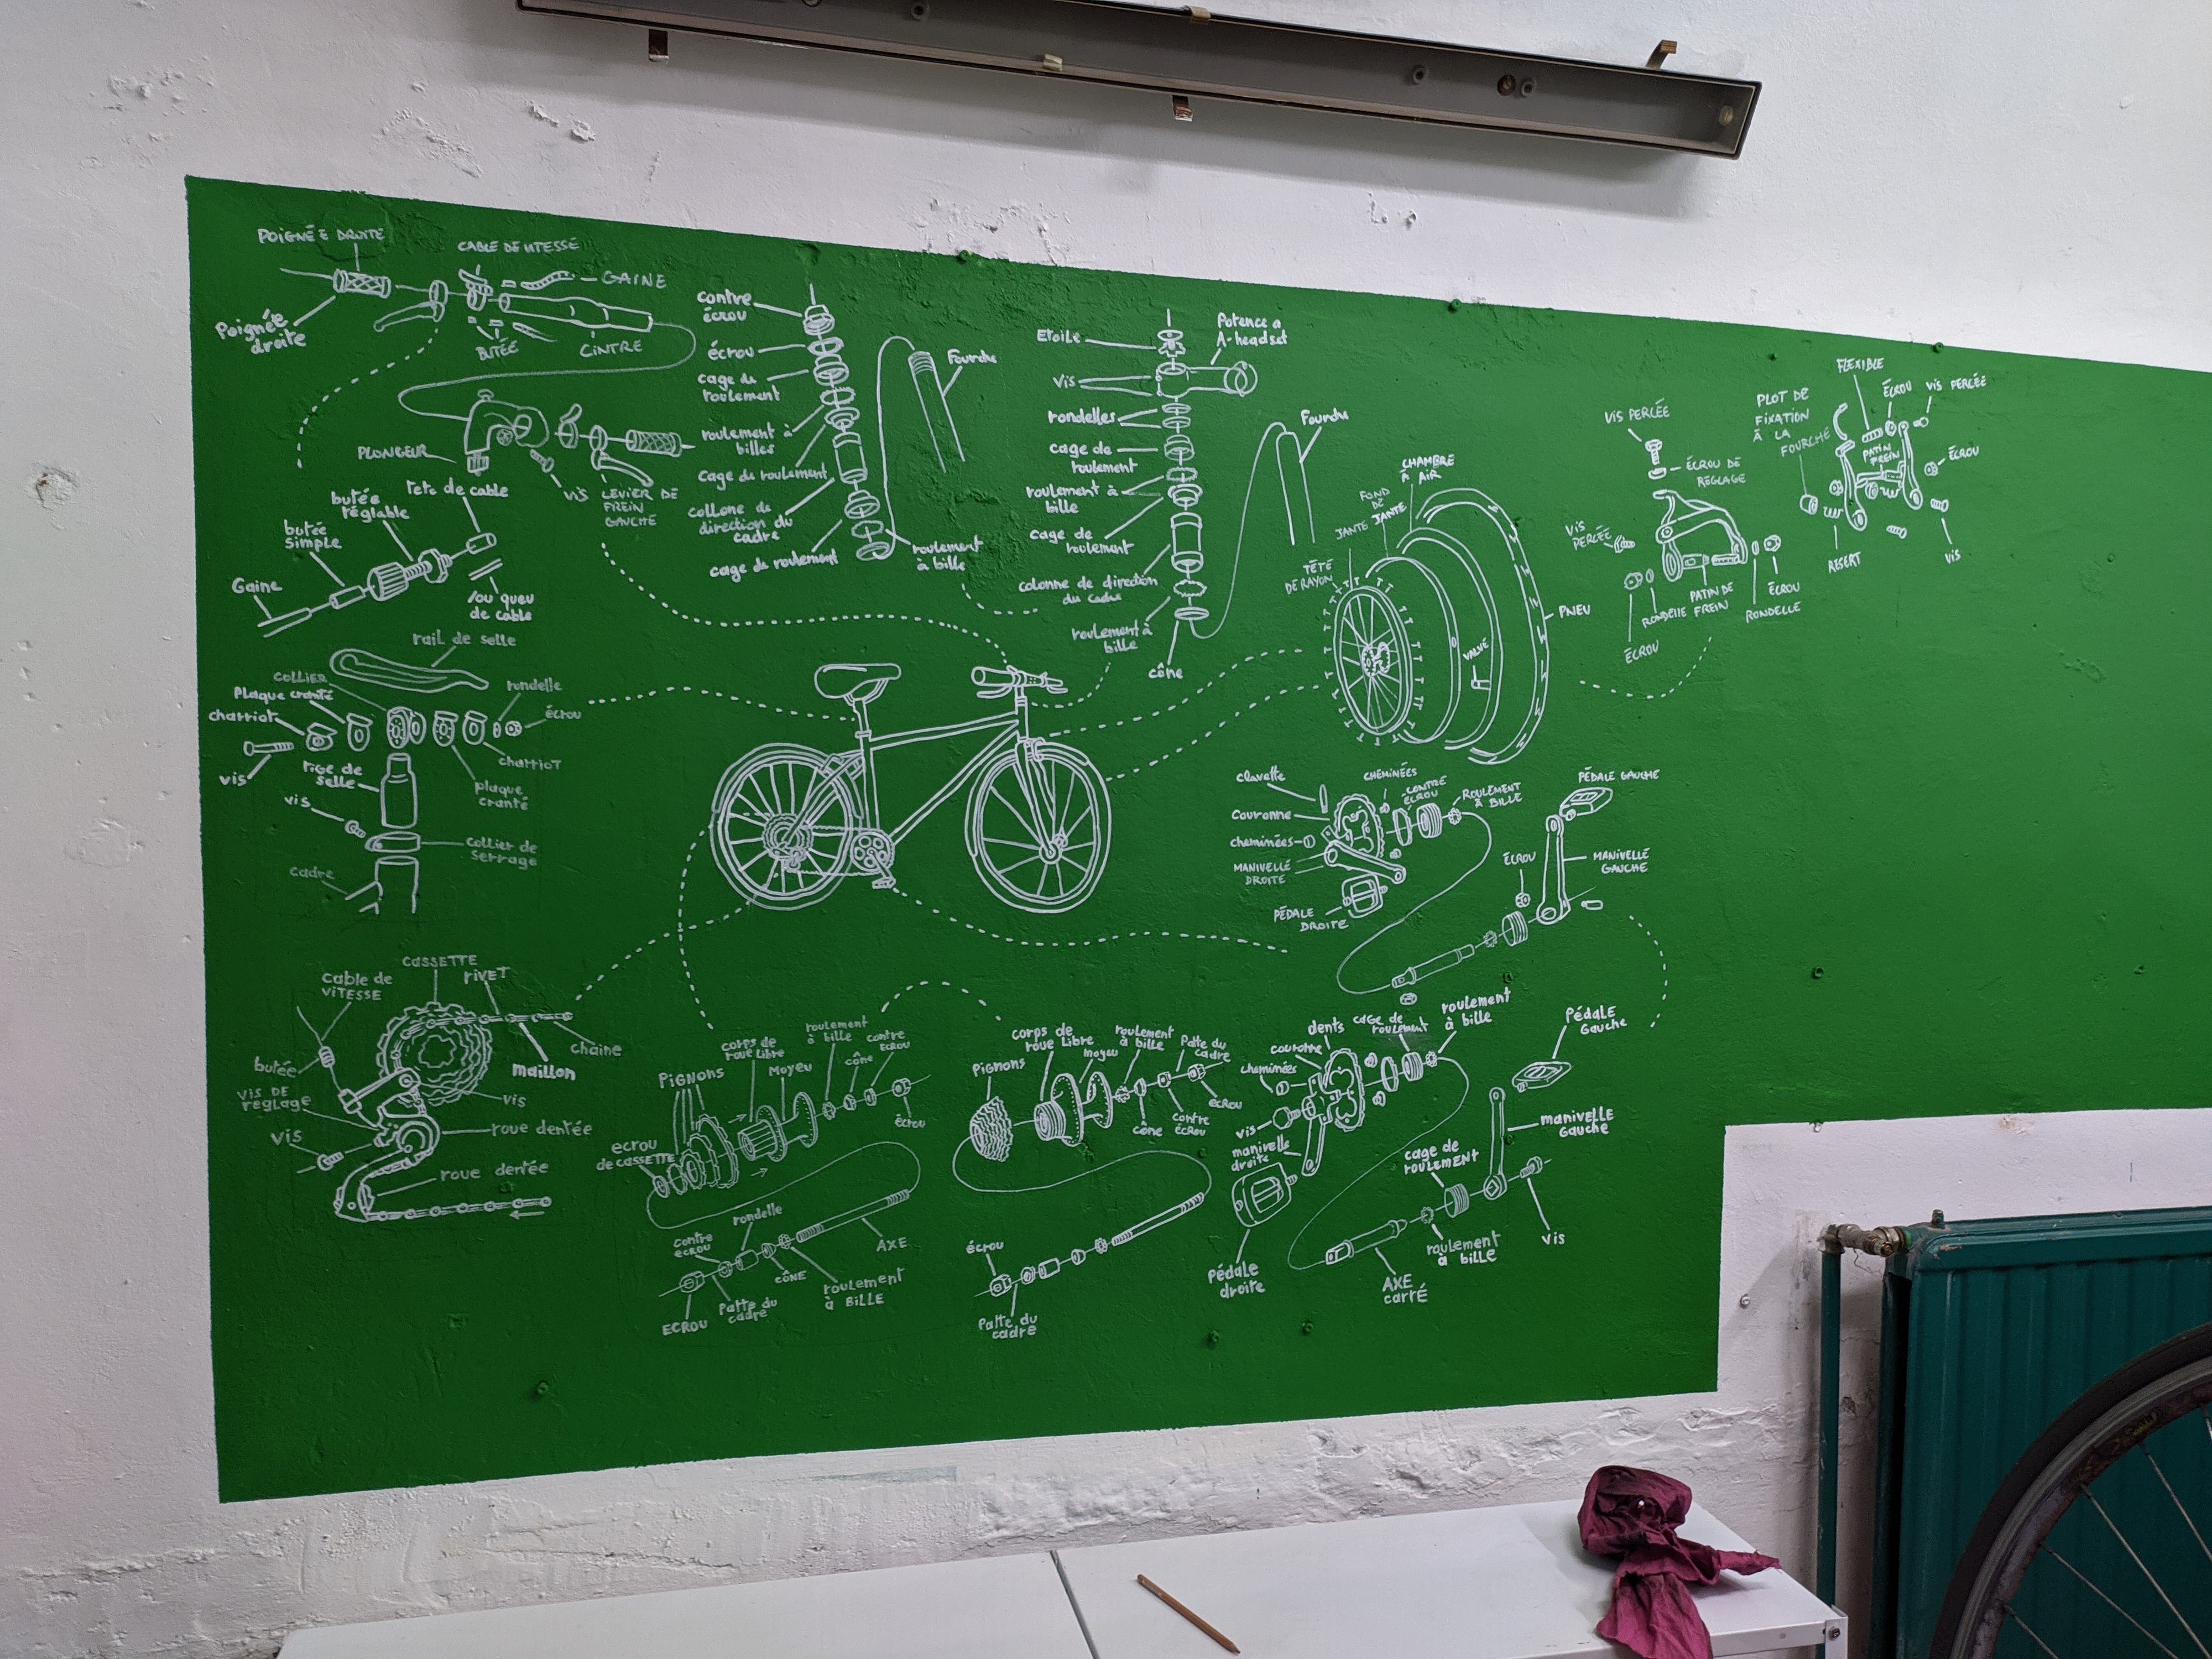 POIGNÉE DROITE
CABLE DE VITESSE
GAINE
Poignée
droite
BUTÉE
CINTRE
PLONGEUR
VIS
LEVIER DE
FREIN
GAUCHE
tete de cable
butée
réglable
butée
simple
Gaine
/ou queu
de cable
contre
écrou
écrou
cage de
roulement
roulement à
billes
cage de roulement
collone de
direction du
cadre
cage de roulement
roulement
à bille
Fourche
Etoile
Potence a
A-headset
vis
rondelles
cage de
roulement
roulement à
bille
cage de
roulement
colonne de direction
du cadre
roulement à
bille
cône
Fourche
CHAMBRE
À AIR
FOND
DE
JANTE
JANTE
TÊTE
DE RAYON
PNEU
VALVE
VIS PERCÉE
ÉCROU DE
RÉGLAGE
VIS
PERCÉE
PATIN DE
FREIN
RONDELLE
ÉCROU
ÉCROU
RONDELLE
PLOT DE
FIXATION
À LA
FOURCHE
FLEXIBLE
ÉCROU
VIS PERCÉE
PATIN
FREIN
ÉCROU
RESERT
VIS
rail de selle
COLLIER
Plaque cranté
charriot
rondelle
écrou
vis
charriot
tige de
selle
plaque
cranté
vis
collier de
serrage
cadre
clavette
CHEMINÉES
CONTRE
ÉCROU
ROULEMENT
À BILLE
PÉDALE GAUCHE
Couronne
cheminées
MANIVELLE
DROITE
PÉDALE
DROITE
ÉCROU
MANIVELLE
GAUCHE
CASSETTE
rivet
cable de
VITESSE
chaine
maillon
butée
VIS DE
REGLAGE
vis
vis
roue dentée
roue dentée
PIGNONS
corps de
roue libre
Moyeu
roulement
à bille
cône
contre
ECROU
écrou
ecrou
de CASSETTE
rondelle
contre
ecrou
AXE
CÔNE
roulement
à BILLE
Patte du
cadre
ECROU
Pignons
corps de
roue Libre
moyeu
roulement
à bille
Patte du
cadre
écrou
cône
contre
écrou
écrou
Patte du
cadre
dents
cage de
roulement
roulement
à bille
couronne
cheminées
Pédale
Gauche
vis
manivelle
droite
manivelle
Gauche
cage de
roulement
Pédale
droite
roulement
à bille
vis
AXE
carré